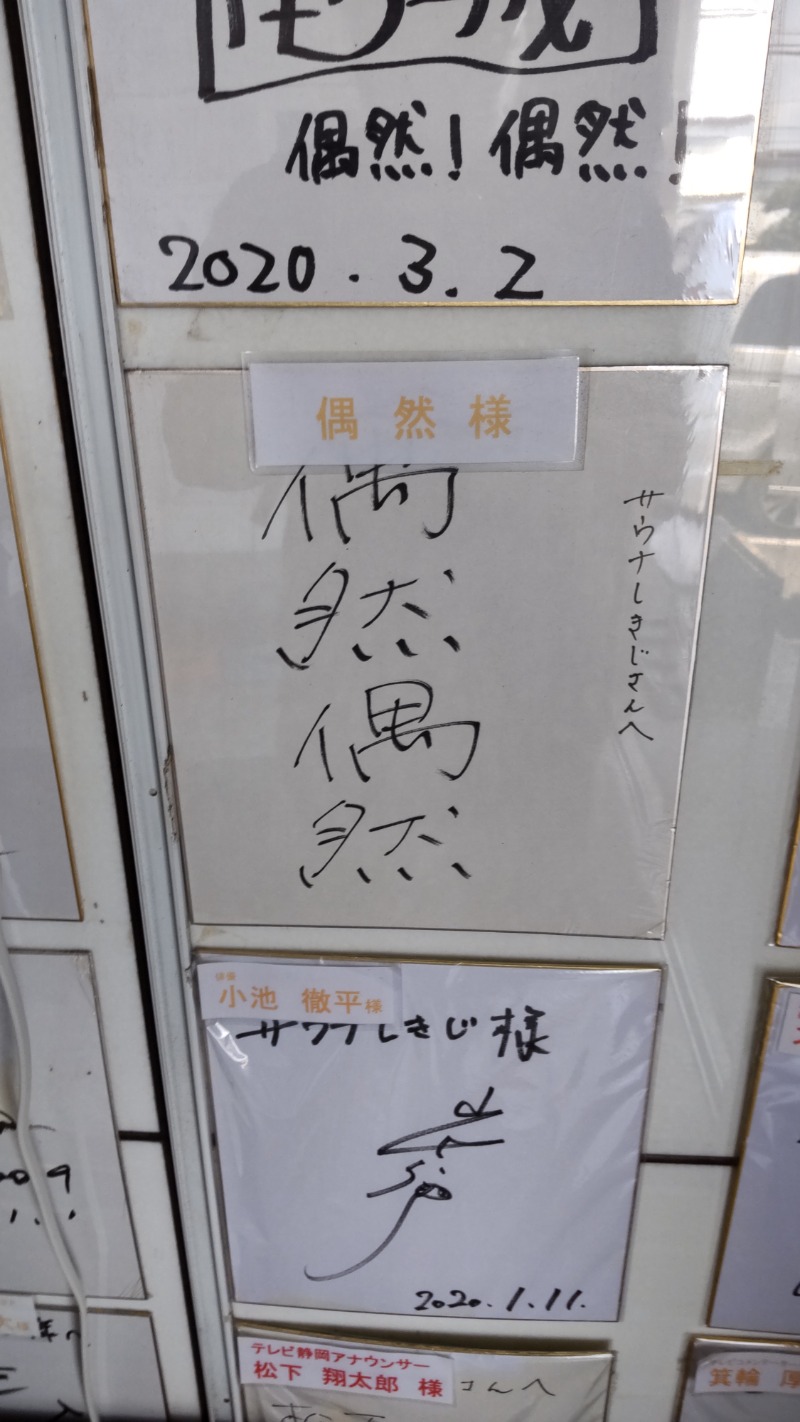 偶然!偶然!
2020.3.2
偶然様
偶
然
偶
然
サウナしきじさんへ
俳優
小池 徹平様
サウナしきじ様
2020.1.11.
テレビ静岡アナウンサー
松下 翔太郎 様
さんへ
箕輪 厚